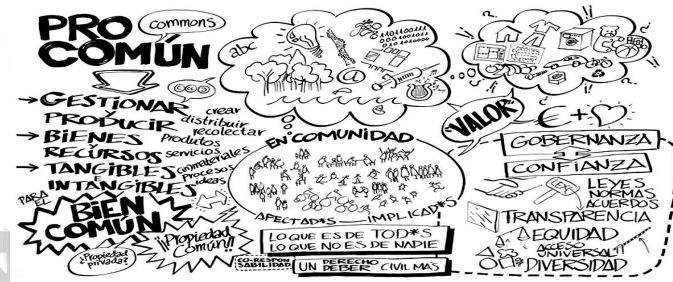 PRO
COMÚN
commons
→ GESTIONAR
PRODUCIR
crear
distribuir
recolectar
→ BIENES
RECURSOS
Produtos
servicios
→ TANGIBLES
INTANGIBLES
inmateriales
Procesos
ideas
PARA EL
BIEN
COMÚN
¿Propiedad
privada?
¡¡Propiedad
Común!!
abc
@
EN COMUNIDAD
AFECTAD*S IMPLICAD*S
LO QUE ES DE TOD*S
LO QUE NO ES DE NADIE
CO-RESPON
SABILIDAD
UN DERECHO
DEBER CIVIL MÁS
"VALOR"
€ +
GOBERNANZA
CONFIANZA
LEYES
NORMAS
ACUERDOS
TRANSPARENCIA
EQUIDAD
ACCESO
UNIVERSAL
DIVERSIDAD